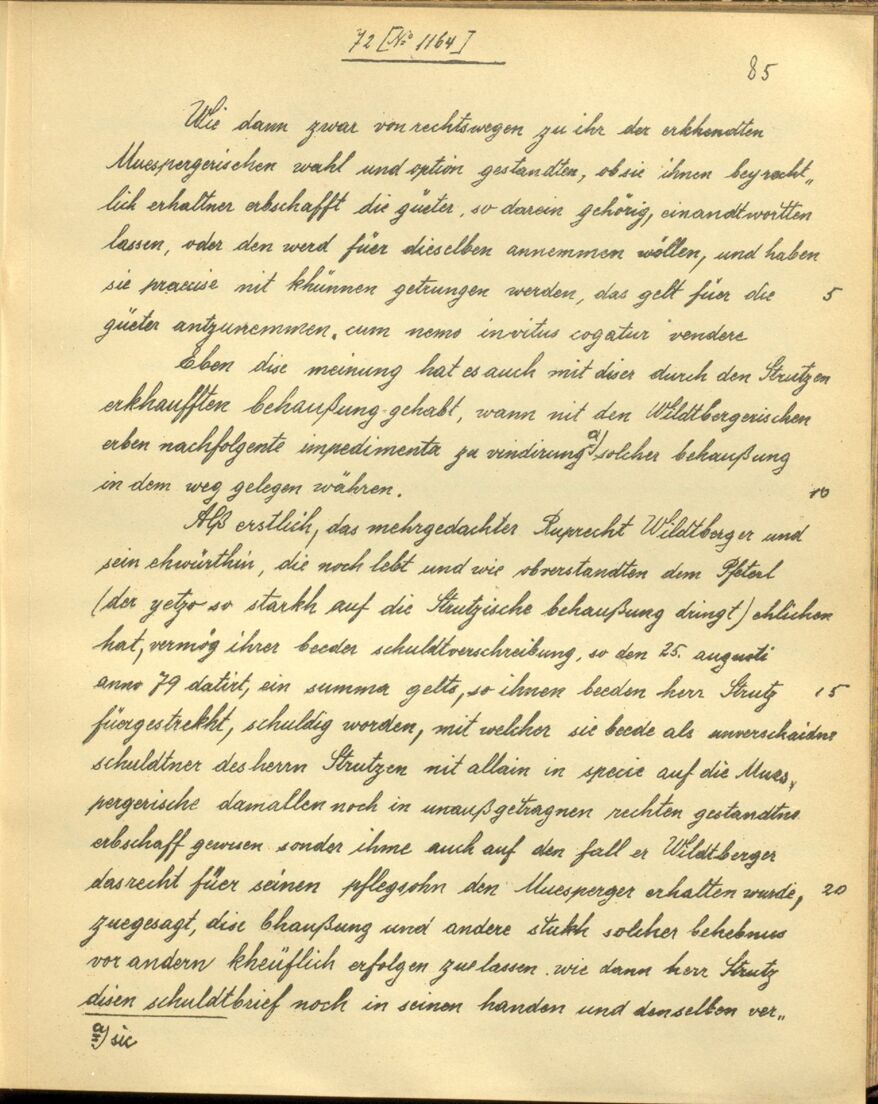 72 [No 1164]
85
Wie dann zwar von rechtswegen zu ihr der erkhendten
Muespergerischen wahl und option gestandten, ob sie ihnen bey recht„
lich erhaltner erbschafft die güeter, so darein gehörig, einandtwortten
lassen, oder den werd füer dieselben annemmen wöllen, und haben
sie praecise nit khünnen getrungen werden, das gelt füer die 5
güeter antzunemmen. cum nemo invitus cogatur vendere
Eben dise meinung hat es auch mit diser durch den Strutzen
erkhaufften behaußung gehabt, wann nit den Wildtbergerischen
erben nachfolgente impedimenta zu vindirung a) solcher behaußung
in dem weg gelegen währen. 10
Alß erstlich, das mehrgedachter Ruprecht Wildtberger und
sein ehwürthin, die noch lebt und wie obverstandten dem Pfeterl
(der yetzo so starkh auf die Strutzische behaußung dringt) ehlichen
hat, vermög ihrer beeder schuldtverschreibung, so den 25. augusti
anno 79 datirt, ein summa gelts, so ihnen beeden herr Strutz 15
füergestrekht, schuldig worden, mit welcher sie beede als unverschaidne
schuldtner des herrn Strutzen nit allain in specie auf die Mues„
pergerische damallen noch in unaußgetragnen rechten gestandtne
erbschaff gewisen sonder ihme auch auf den fall er Wildtberger
das recht füer seinen pflegsohn den Muesperger erhalten wurde, 20
zuegesagt, dise bhaußung und andere stukh solcher behebnus
vor andern kheüflich erfolgen zue lassen. wie dann herr Strutz
disen schuldtbrief noch in seinen handen und denselben ver„
a) sic